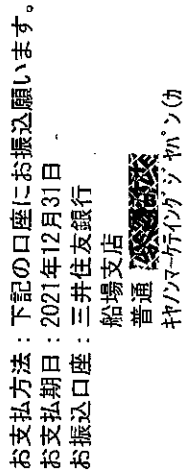 お支払方法：下記の口座にお振込願います。
お支払期日：2021年12月31日
お振込口座：三井住友銀行
船場支店
普通
キヤノンマーケティングジャパン(カ